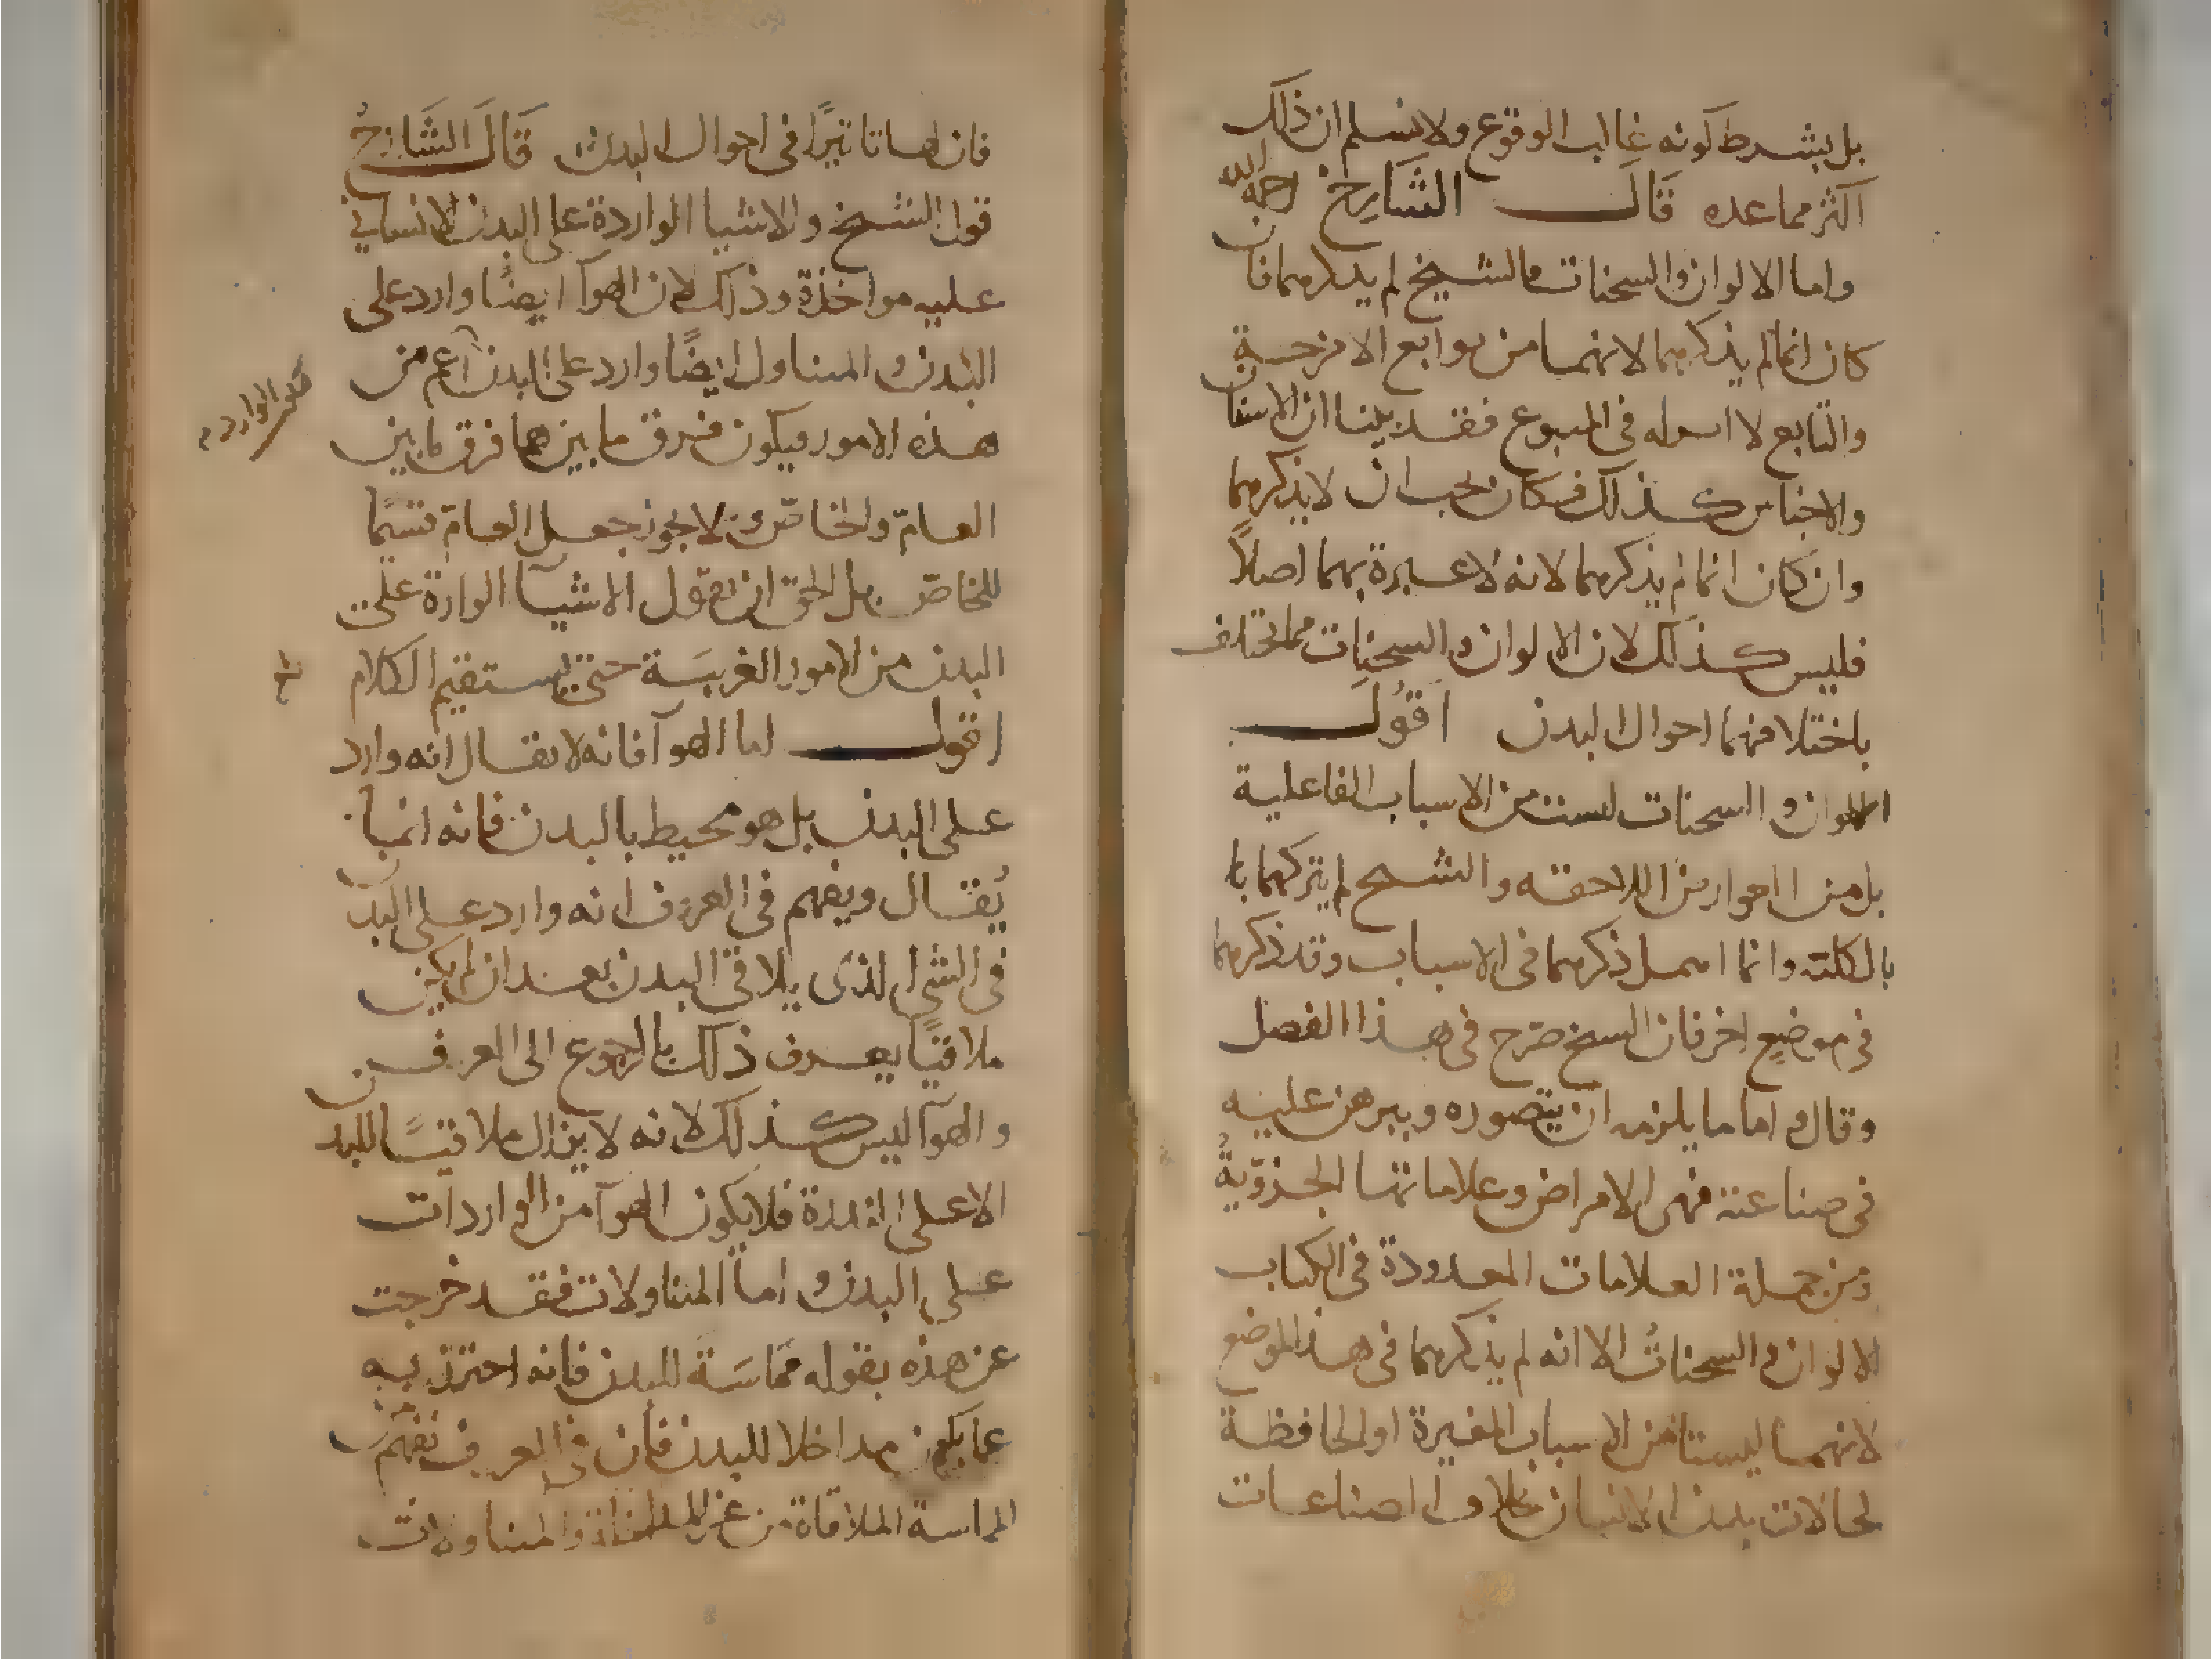 بل بشرط كونه غالب الوقوع ولا نسلم ان ذلك
اكثر مما عده قال الشارح رحمه الله
واما الالوان والسحنات فالشيخ لم يذكرهما فان
كان انما لم يذكرهما لانهما من توابع الامزجة
والتابع لا اسوله في المتبوع فقد بينا ان الاسنان
والاجناس كذلك فكان يجب ان لا يذكرهما
وان كان انما لم يذكرهما لانه لا عبرة بهما اصلاً
فليس كذلك لان الالوان والسحنات مما تختلف
باختلافهما احوال البدن اقول
الالوان والسحنات ليست من الاسباب الفاعلية
بل من العوارض اللاحقة والشيخ لم يتركهما با
بالكلية وانما اهمل ذكرهما في الاسباب وقد ذكرهما
في موضع اخر فان الشيخ صرح في هذا الفصل
وقال واما ما يلزمه ان يتصوره ويبرهن عليه
في صناعته فهي الامراض وعلاماتها الجزوّية
ومن جملة العلامات المعدودة في الكتاب
الالوان والسحنات الا انه لم يذكرهما في هذا الموضع
لانهما ليستا من الاسباب المغيرة او الحافظة
لحالات بدن الانسان الصناعات
فان لها تاثيرًا في احوال البدن قال الشارح
قول الشيخ والاشيا الواردة على البدن الانساني
عليه مواخذة وذلك لان الهوآ ايضًا وارد على
البدن والمتناول ايضًا وارد على البدن اعم من
هذه الامور فيكون فرق ما بينهما فرق ما بين
العامّ والخاصّ ولا يجوز جعل العامّ قسيمًا
للخاصّ بل الحق ان يقول الاشيآ الواردة على
البدن من الامور الغريبة حتى يستقيم الكلام
اقول اما الهوآ فانه لا يقال انه وارد
على البدن بل هو محيط بالبدن فانه انما
يُقال ويفهم في العرف انه وارد على البدن
في الشي الذي يلاقي البدن بعد ان لم يكن
ملاقيًا يعرف ذلك بالرجوع الى العرف
والهوآ ليس كذلك لانه لا يزال ملاقيًا للبدن
الاعلى فلا يكون الهوآ من الواردات
على البدن واما المتناولات فقد خرجت
عن هذه بقوله مماسة للبدن فانه احترز به
عما يكون مداخلا للبدن فان في العرف تفهم من
المماسة الملاقاة من غير المداخلة والمتناولات